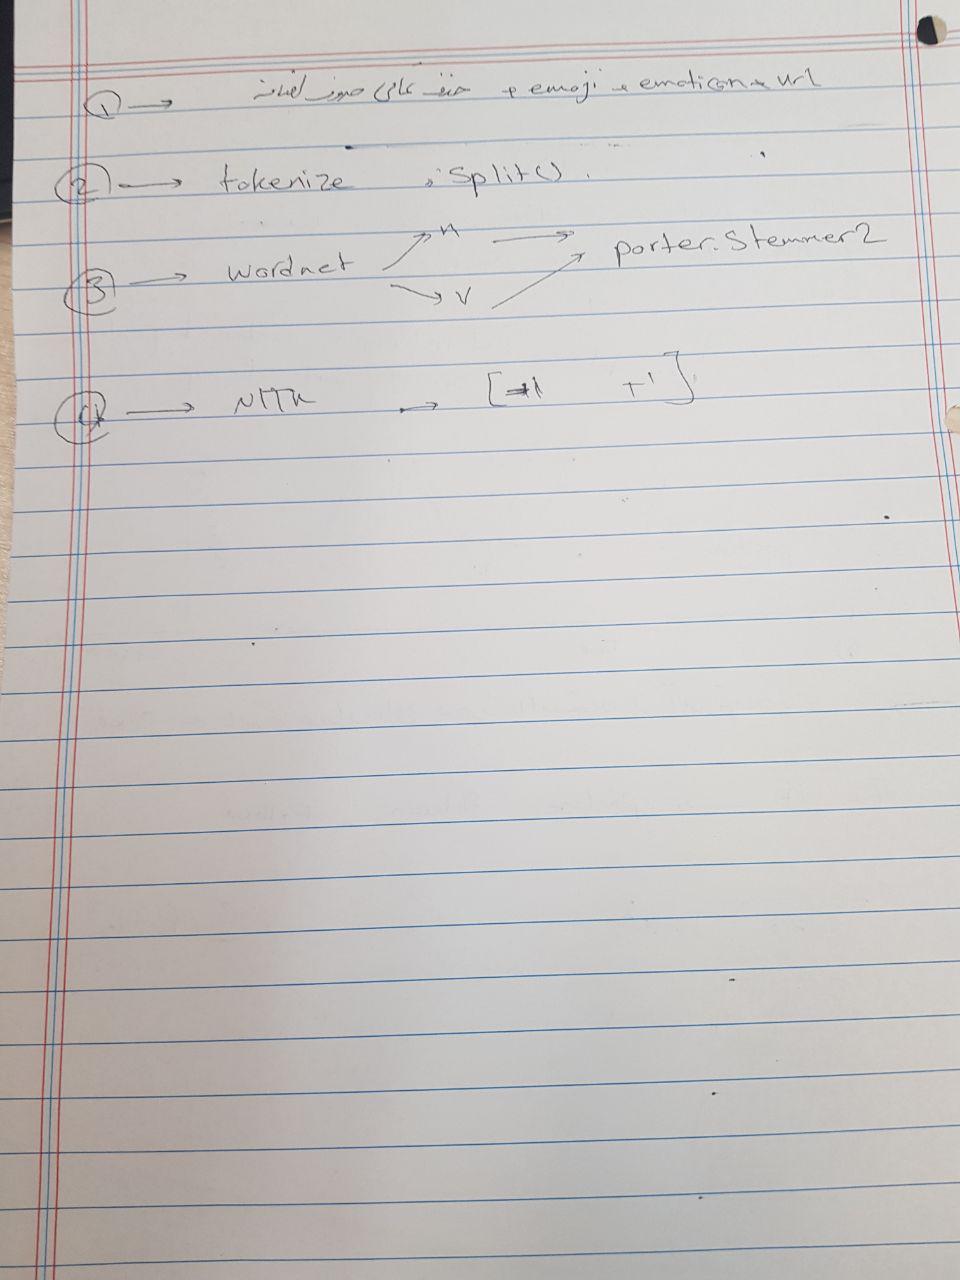 1 → حذف علائم و حروف اضافه و emoji و emoticon و url
2 → tokenize , split() .
3 → wordnet ↗ n → porter.Stemmer2
↘ v ↗
4 → NLTK → [-1 +1]